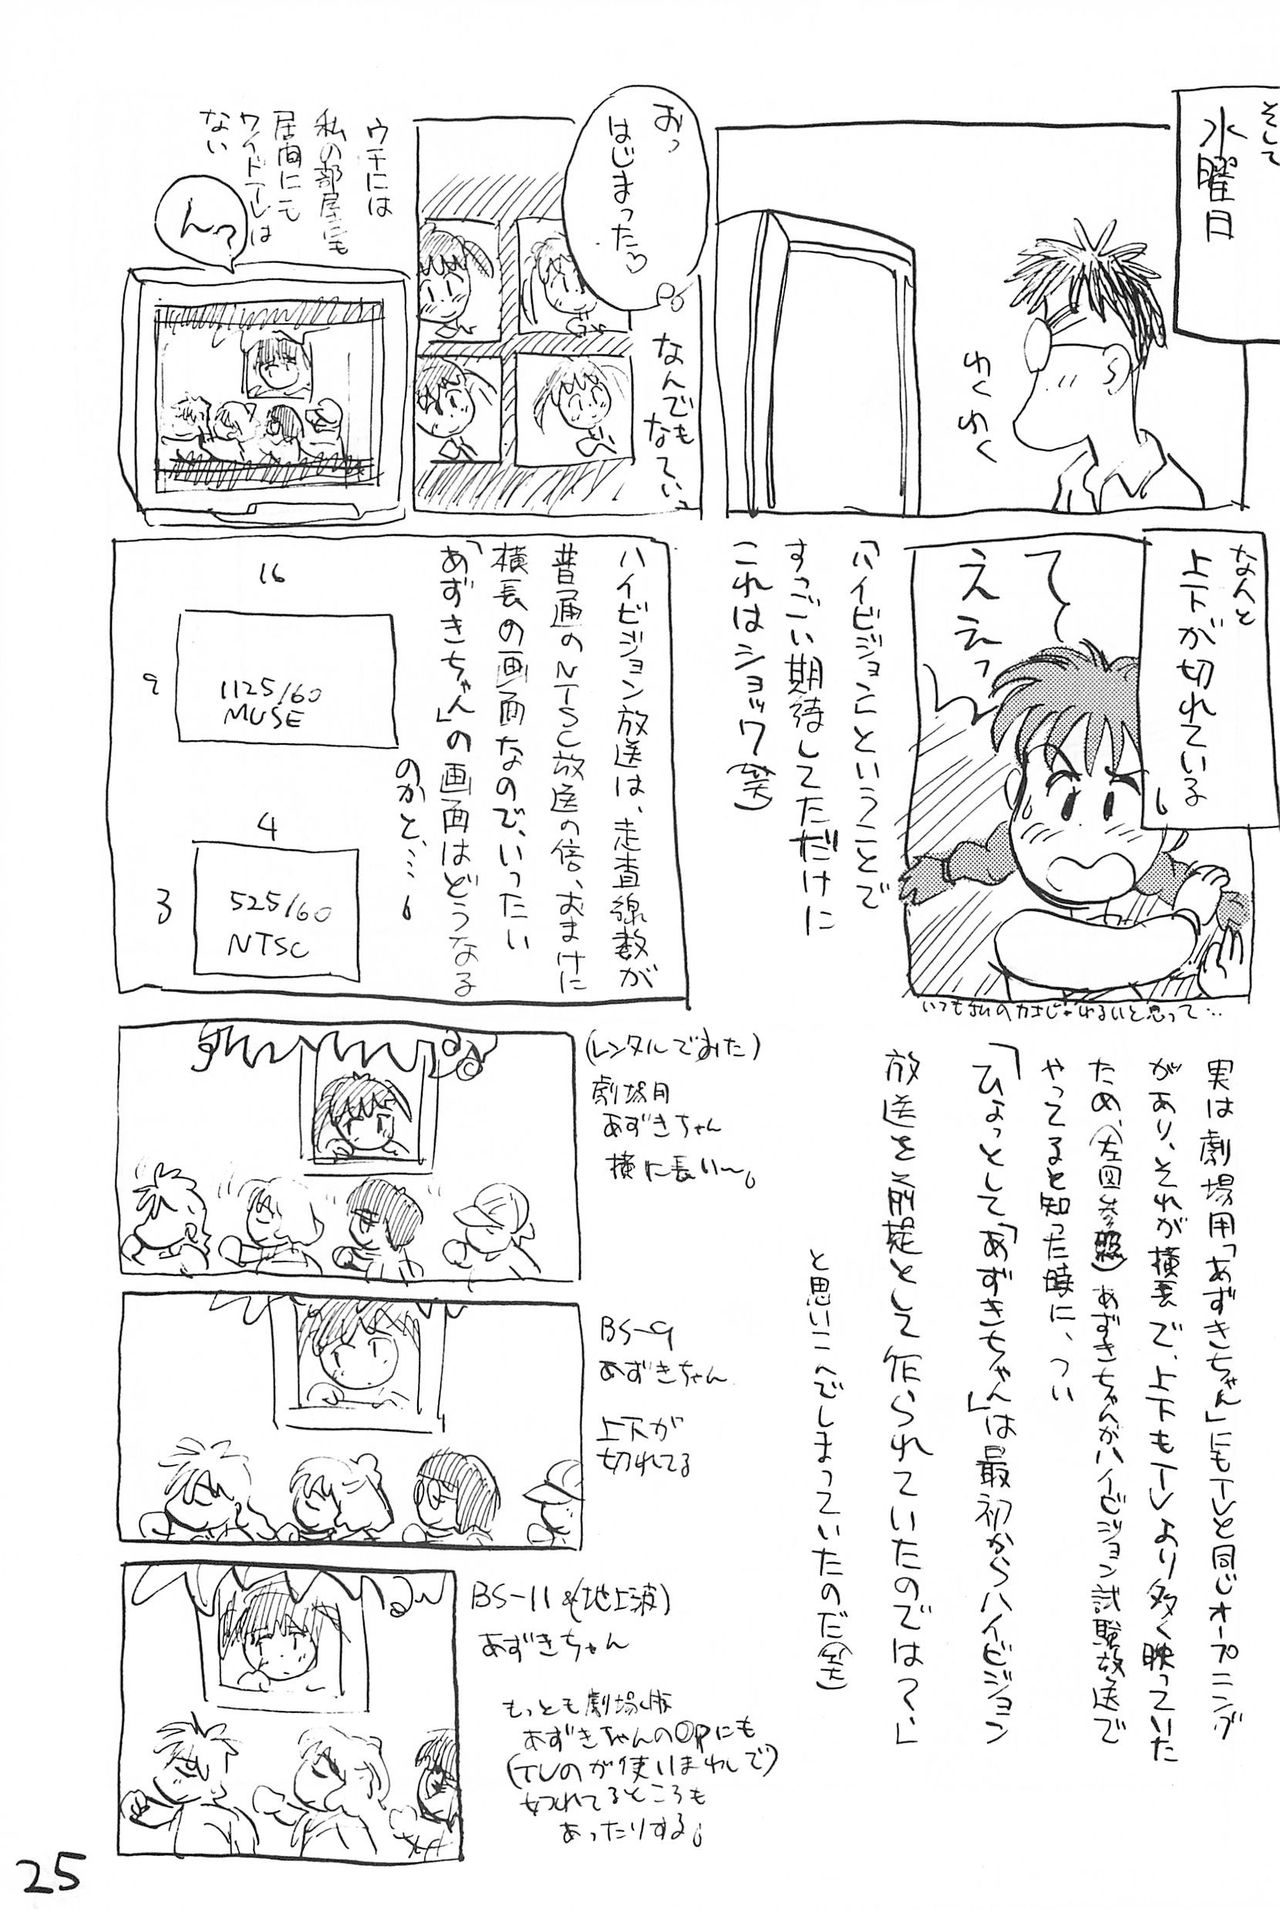 そして
水曜日
わくわく
おっ
はじまった♡
なんでも
なてぃっ
ウチには
私の部屋にも
居間にも
ワイドTVは
ない
ん?
なんと
上下が切れている
て〜
ええっ
いつも私の力はじゃゆるいと思って…
「ハイビジョン」ということで
すっごい期待してただけに
これはショック(笑)
ハイビジョン放送は、走査線数が
普通のNTSC放送の倍、おまけに
横長の画面なので、いったい
「あずきちゃん」の画面はどうなる
のかと、…。
16
9
1125/60
MUSE
4
3
525/60
NTSC
実は劇場用「あずきちゃん」にもTVと同じオープニング
があり、それが横長で、上下もTVより多く映っていた
ため、(左図参照)あずきちゃんがハイビジョン試験放送で
やってると知った時に、つい
「ひょっとして「あずきちゃん」は最初からハイビジョン
放送を前提として作られていたのでは?」
と思いこんでしまっていたのだ(笑)
(レンタルでみた)
劇場用
あずきちゃん
横に長い〜。
BS-9
あずきちゃん
上下が
切れてる
BS-11&(地上波)
あずきちゃん
もっとも劇場版
あずきちゃんのOPにも
(TVのが使いまわしで)
切れてるところも
あったりする。
25